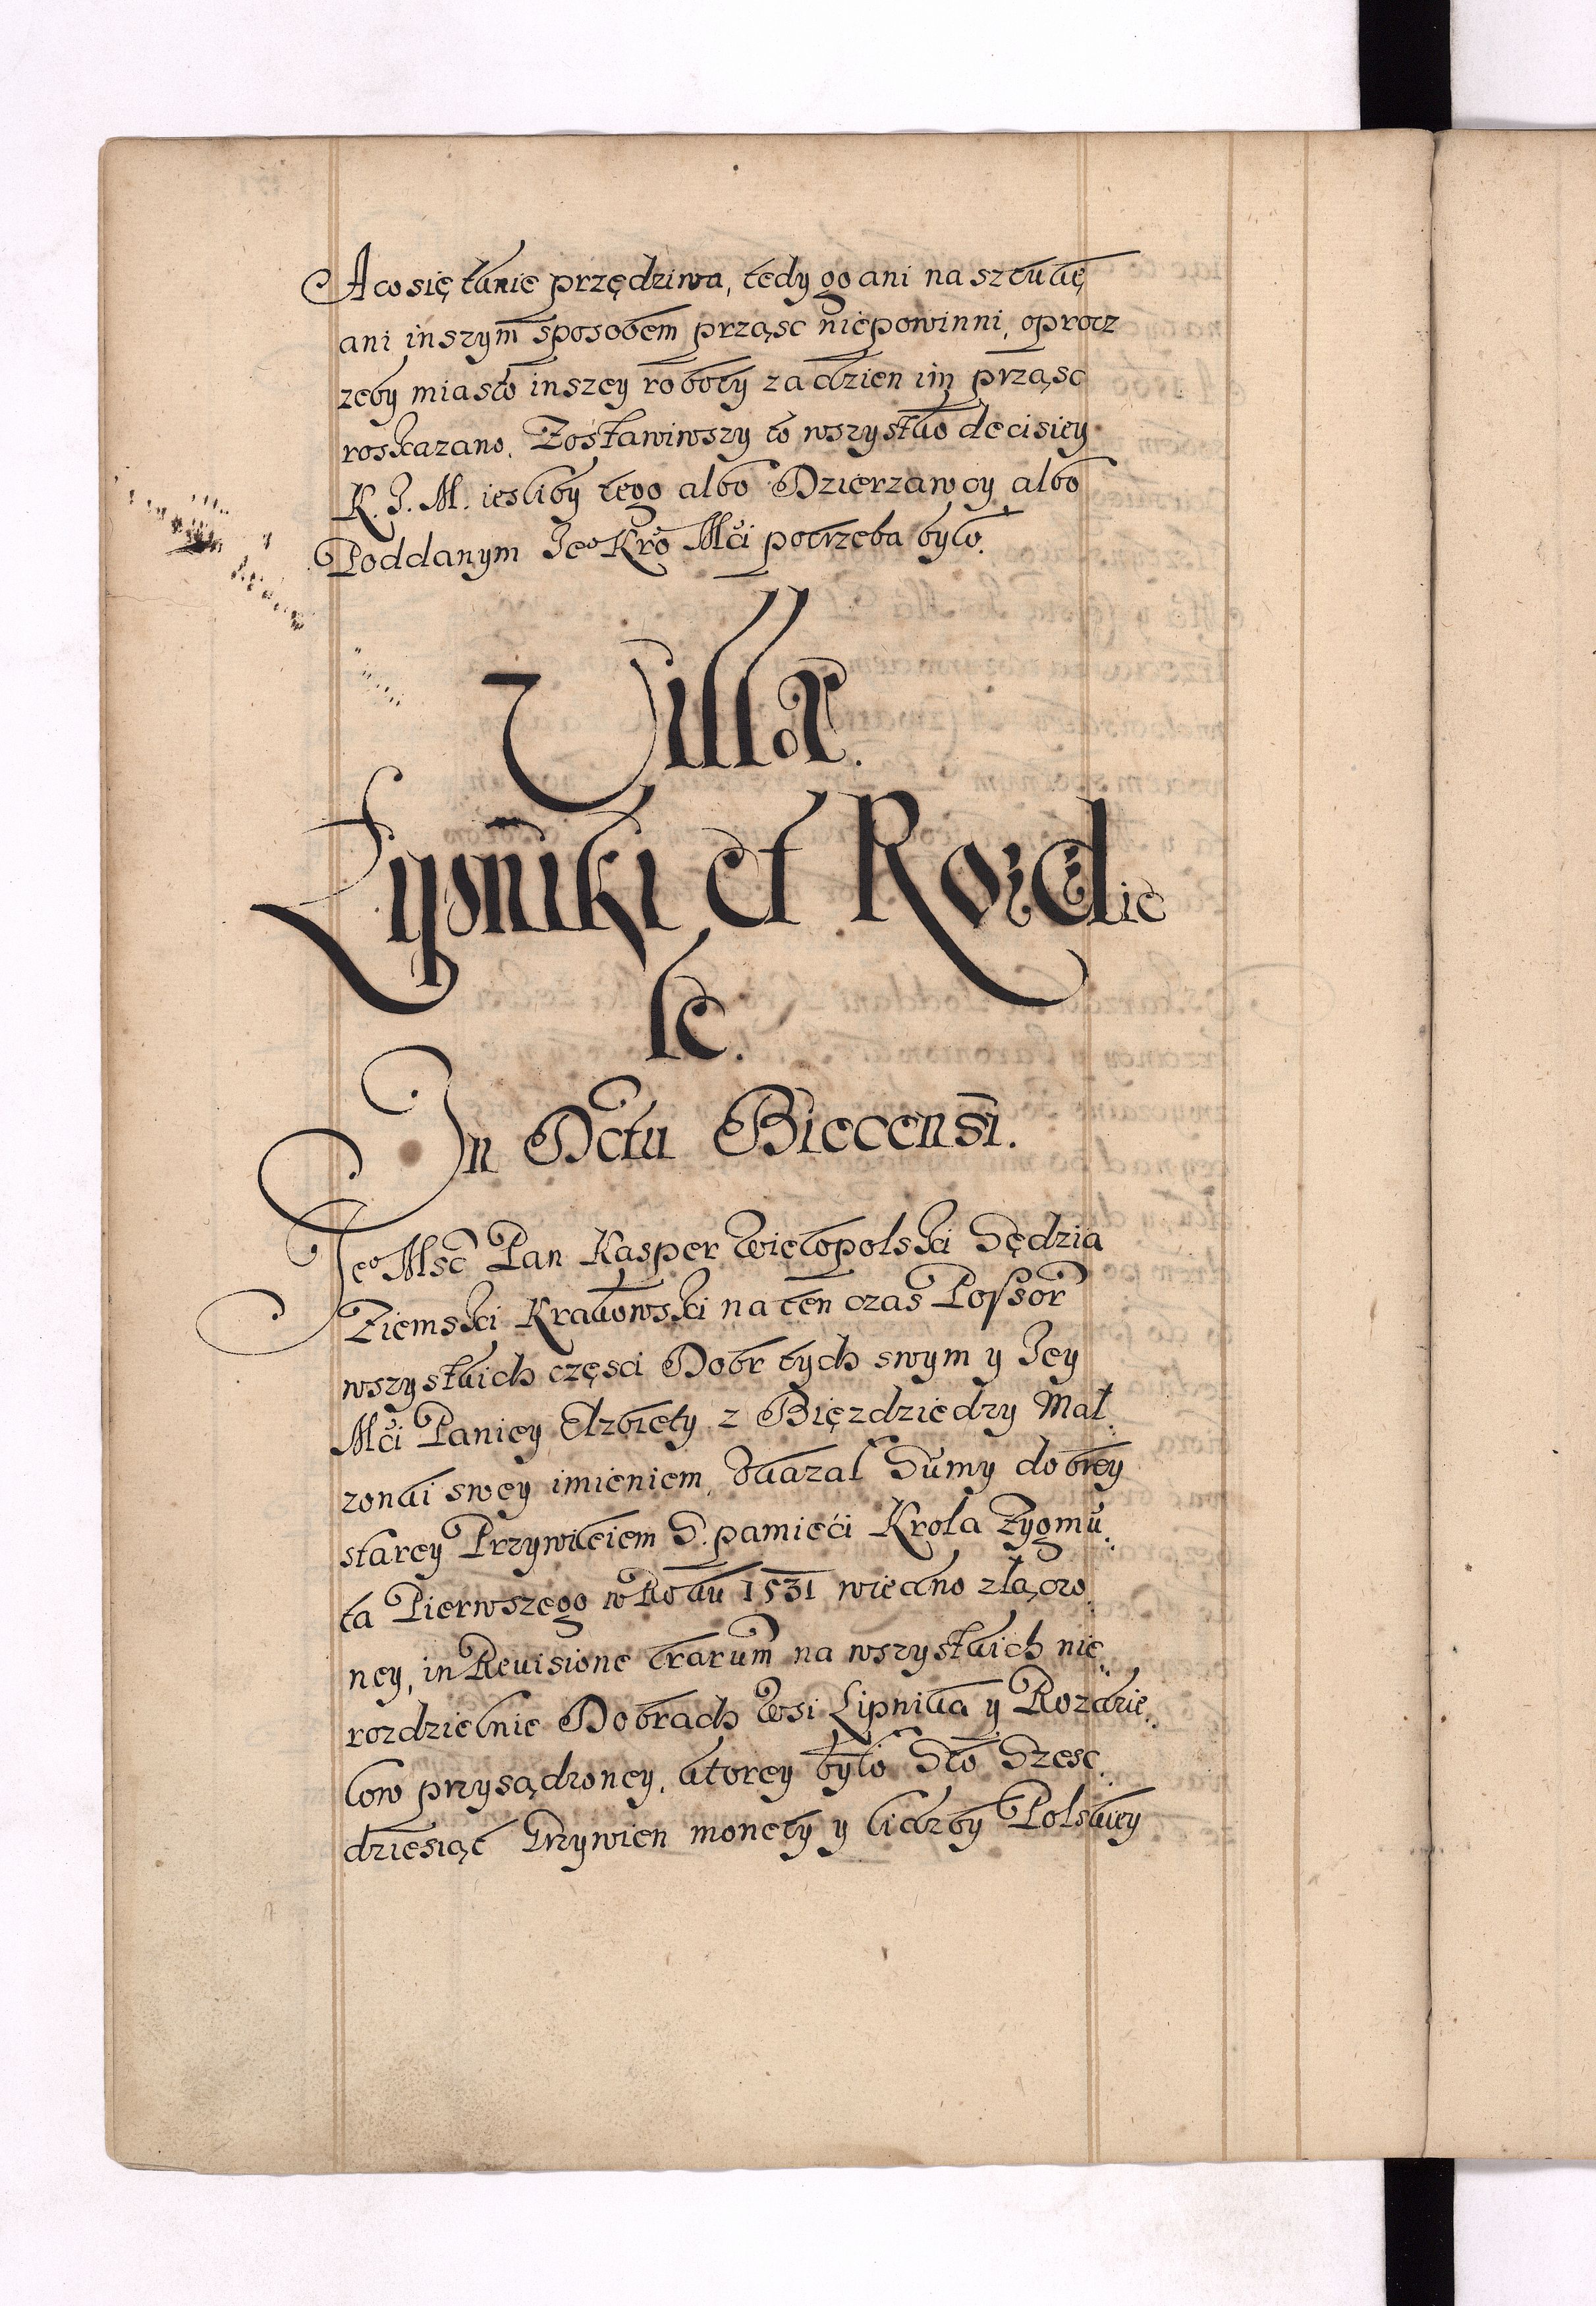 A co się tknie przędziwa, tedy go ani na sztukę
ani inszym sposobem prząsc niepowinni, oprocz
zeby miasto inszey roboty za dzien im prząsc
roskazano. Zostawiwszy to wszystko decisiey
K. J. M. iesliby tego albo Dzierzawcy albo
Poddanym Jeo Kro Mci potrzeba było.
Villa.
Lypniki et Rozdie
le.
In Dctu Biecensi.
Jeo Msc Pan Kasper Wielopolski Sędzia
Ziemski Krakowski na ten czas Possor
wszystkich częsci Dobr tych swym y Jey
Mci Paniey Elzbiety z Bięzdziedzy Mał
zonki swey imieniem, Okazał Summy dobrey
starey Przywileiem S. pamięci Krola Zygmu
ta Pierwszego w Roku 1531 wiedno złączo
ney, in Reuisione lrarum na wszystkich nie
rozdzielnie Dobrach Wsi Lipnika y Rozdzie
low przysądzoney, ktorey było Sto Szesc
dziesiąt Grzywien monety y liczby Polskiey